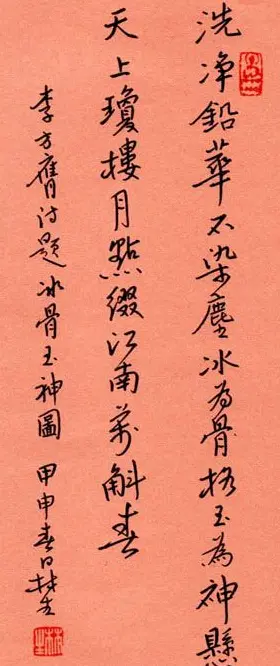 洗净鉛華不染塵冰為骨格玉為神懸
天上瓊樓月點綴江南萬斛春
李方膺詩題冰骨玉神圖 甲申春日